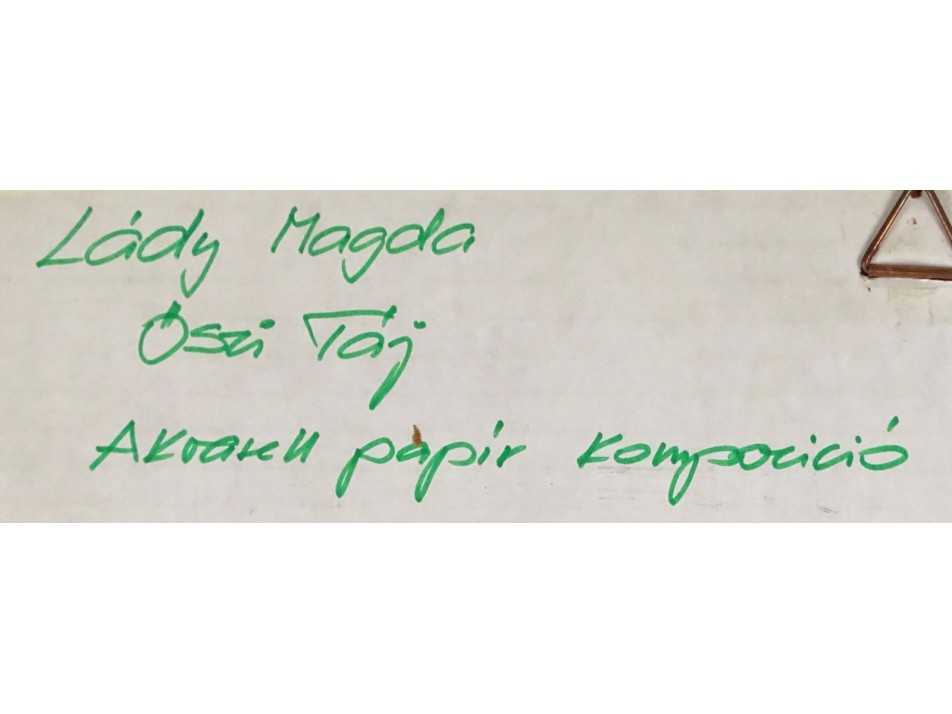 Lády Magda
Őszi Táj
Akvarell papír kompozició